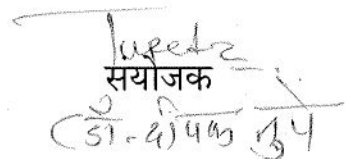 सयोजक
(डॉ. दीपक तुपे